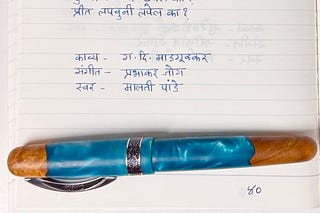 प्रीत लपवुनी लपेल का?
काव्य - ग. दि. माडगूळकर
संगीत - प्रभाकर जोग
स्वर - मालती पांडे
४०